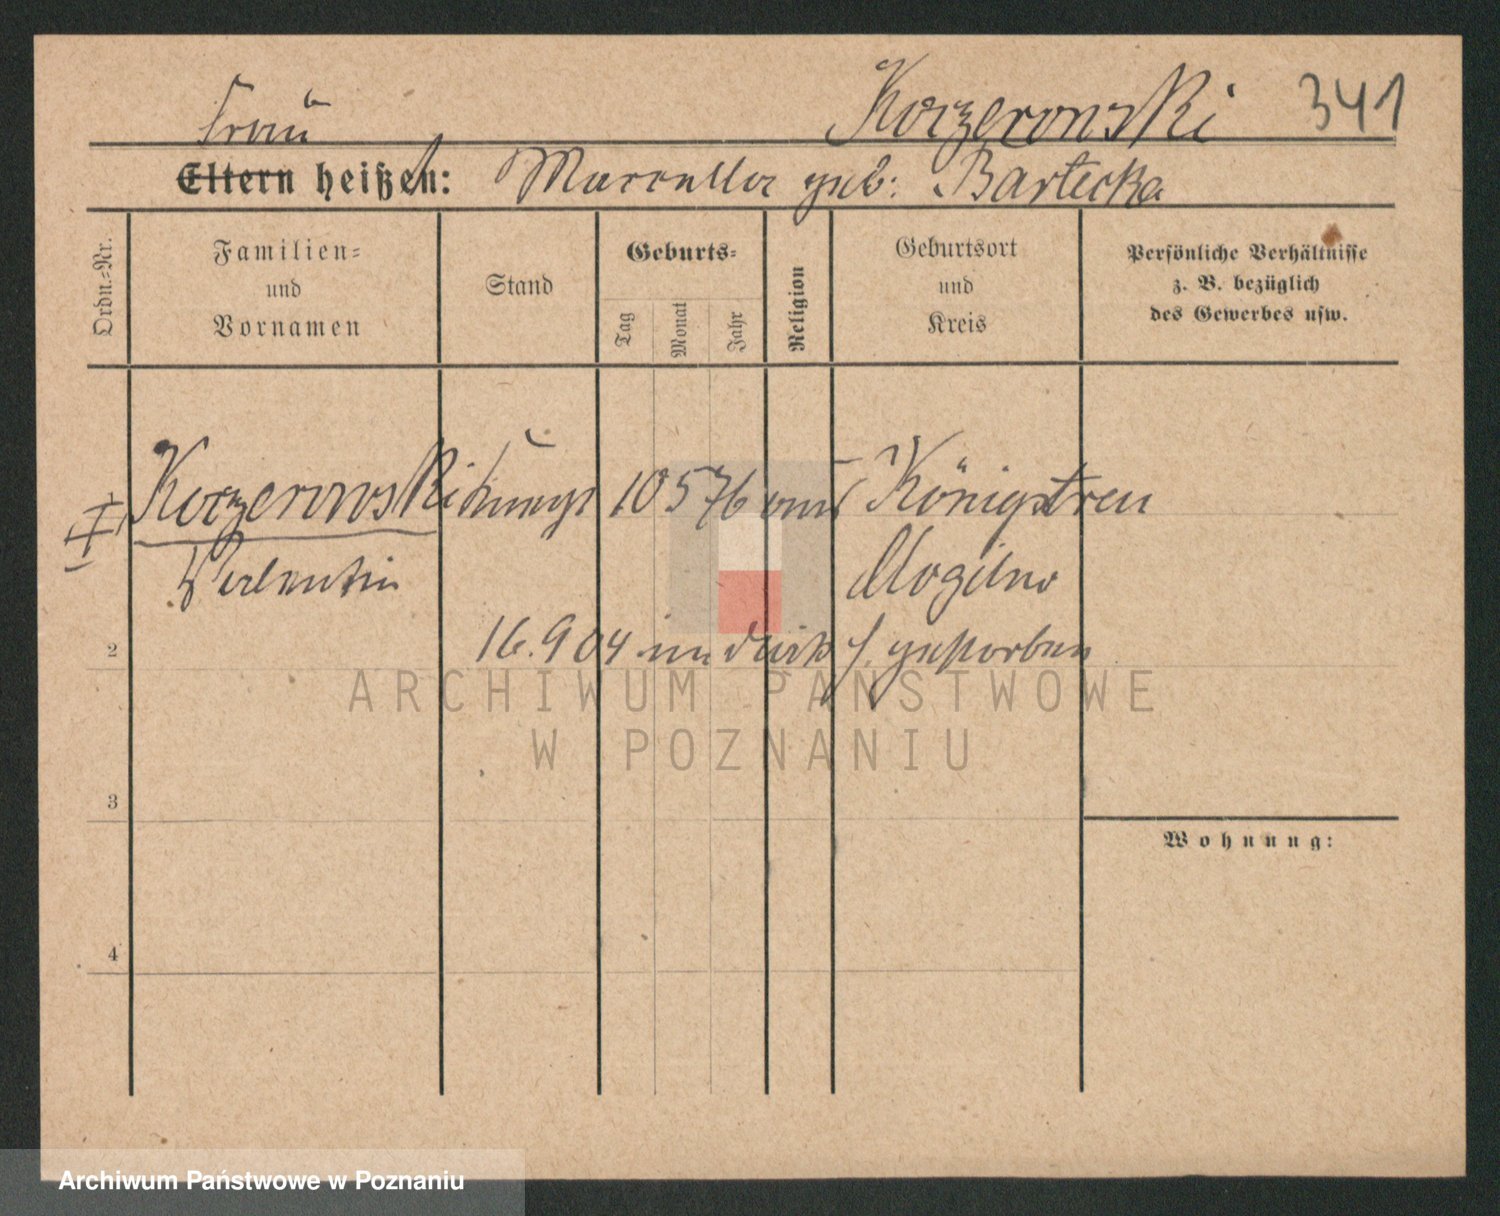 Frau Korzerowski 341
Eltern heißen: Marcella geb. Bartecka
Ordn.=Nr.
Familien=
und
Vornamen
Stand
Geburts=
Tag
Monat
Jahr
Religion
Geburtsort
und
Kreis
Persönliche Verhältnisse
z. B. bezüglich
des Gewerbes usw.
Korzerowski 10 5 76 Königstreu
Valentin Mogilno
2
16.9 04 gestorben
ARCHIWUM PAŃSTWOWE
W POZNANIU
3
Wohnung:
4
Archiwum Państwowe w Poznaniu